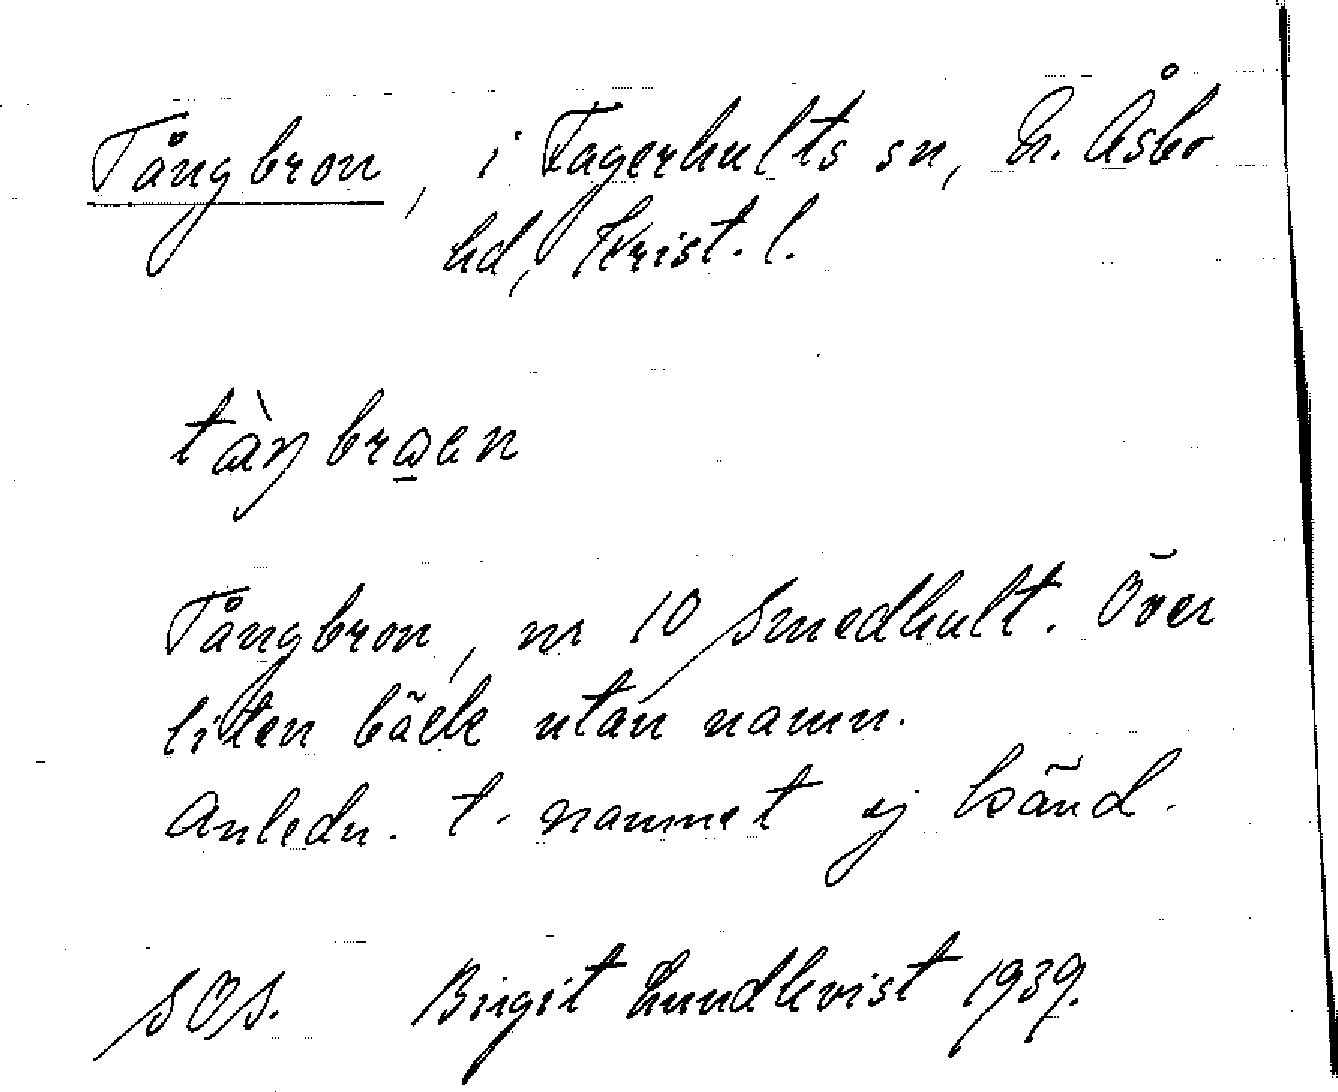 Tångbron, i Fagerhults sn, N. Åsbo
hd, Krist. l.
Tångbron, nr 10 Smedhult. Över
liten bäck utan namn.
Anledn. t. namnet ej känd.
SOS. Birgit Lundkvist 1939.